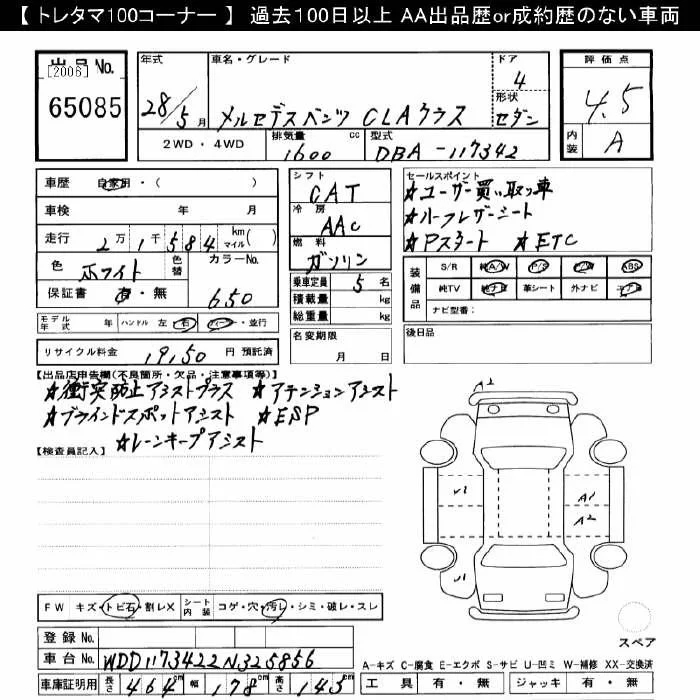 【 トレタマ100コーナー 】 過去100日以上 AA出品歴or成約歴のない車両
出品No.
[2006]
65085
年式
28/5月
車名・グレード
メルセデスベンツ CLAクラス
ドア
4
形状
セダン
2WD・4WD
排気量 cc
1600
型式
DBA-117342
評価点
4.5
内装
A
車歴 自家用・( )
車検 年 月
走行 2万1千584 km マイル( )
色 ホワイト 色替 カラーNo. 650
保証書 有・無
モデル年式 年 ハンドル 左 右 ・並行
リサイクル料金 19,50 円 預託済
シフト
CAT
冷房
AAC
燃料
ガソリン
乗車定員 5 名
積載量 kg
総重量 kg
名変期限
月 日
セールスポイント
★ユーザー買い取り車
★ハーフレザーシート
★Pスタート ★ETC
装備品
S/R 純A/W P/S P/W ABS
純TV 純ナビ 革シート 外ナビ エアB
ナビ型番:
後日品
【出品店申告欄(不良箇所・欠品・注意事項等)】
★衝突防止アシストプラス ★アテンションアシスト
★ブラインドスポットアシスト ★ESP
★レーンキープアシスト
【検査員記入】
A2
A1
A2
スペア
FW キズ・トビ石・割レX シート内装 コゲ・穴・汚レ・シミ・破レ・スレ
登録No.
車台No. WDD1173422N325856
車庫証明用 長さ 464cm 幅 178cm 高さ 143cm
A-キズ C-腐食 E-エクボ S-サビ U-凹ミ W-補修 XX-交換済
工具 有・無 ジャッキ 有・無